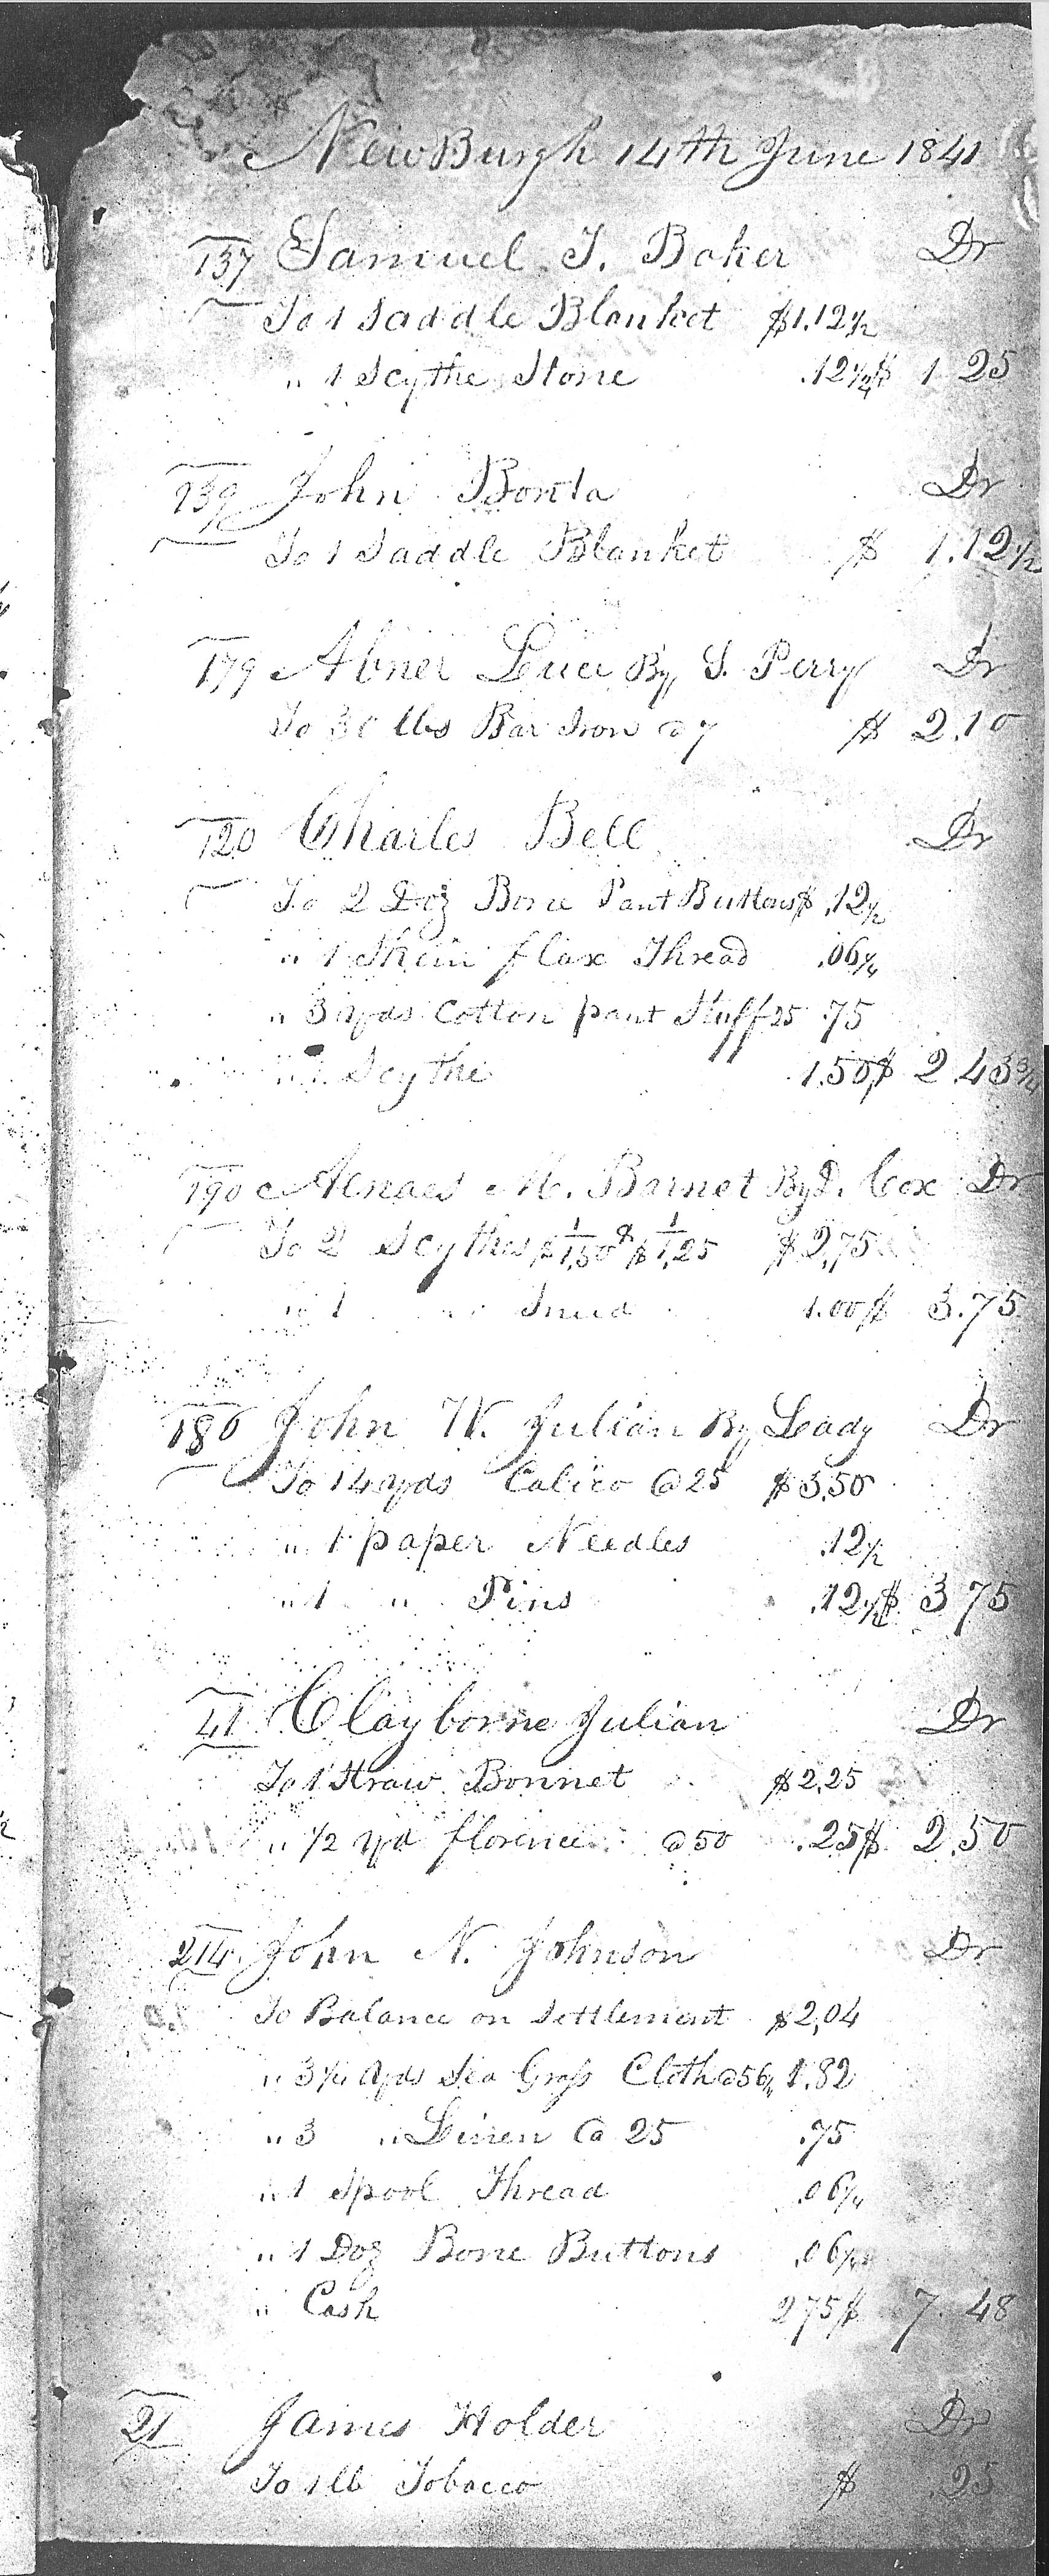 NewBurgh 14th June 1841
137 Samuel T. Baker Dr
To 1 Saddle Blanket $1.12½
" 1 Scythe Stone .12½ $ 1 25
139 John Bonta Dr
To 1 Saddle Blanket $ 1.12½
179 Abner Luce By S. Perry Dr
To 30 lbs Bar Iron @ 7 $ 2.10
120 Charles Bell Dr
To 2 Doz Bone Pant Buttons $ .12½
" 1 Skein flax Thread .06¼
" 3 yds Cotton pant Stuff 25 .75
" 1 Scythe 1.50 $ 2.43¾
190 Aenaes M. Barnet By D. Cox Dr
To 2 Scythes 1/$1,50 & 1/$1,25 $2,75
" 1 " Snead 1.00 $ 3.75
186 John W. Julian By Lady Dr
To 14 yds Calico @ 25 $3,50
" 1 paper Needles .12½
" 1 " Pins .12½ $ 3 75
41 Clayborne Julian Dr
To 1 Straw Bonnet $2,25
" 1/2 yd florence @ 50 .25 $ 2.50
214 John N. Johnson Dr
To Balance on Settlement $2,04
" 3¼ yds Sea Grass Cloth @ 56¼ 1.82
" 3 " Linen @ 25 .75
" 1 Spool Thread .06¼
" 1 Doz Bone Buttons .06¼
" Cash 2 75 $ 7. 48
21 James Holder Dr
To 1 lb Tobacco $ .25